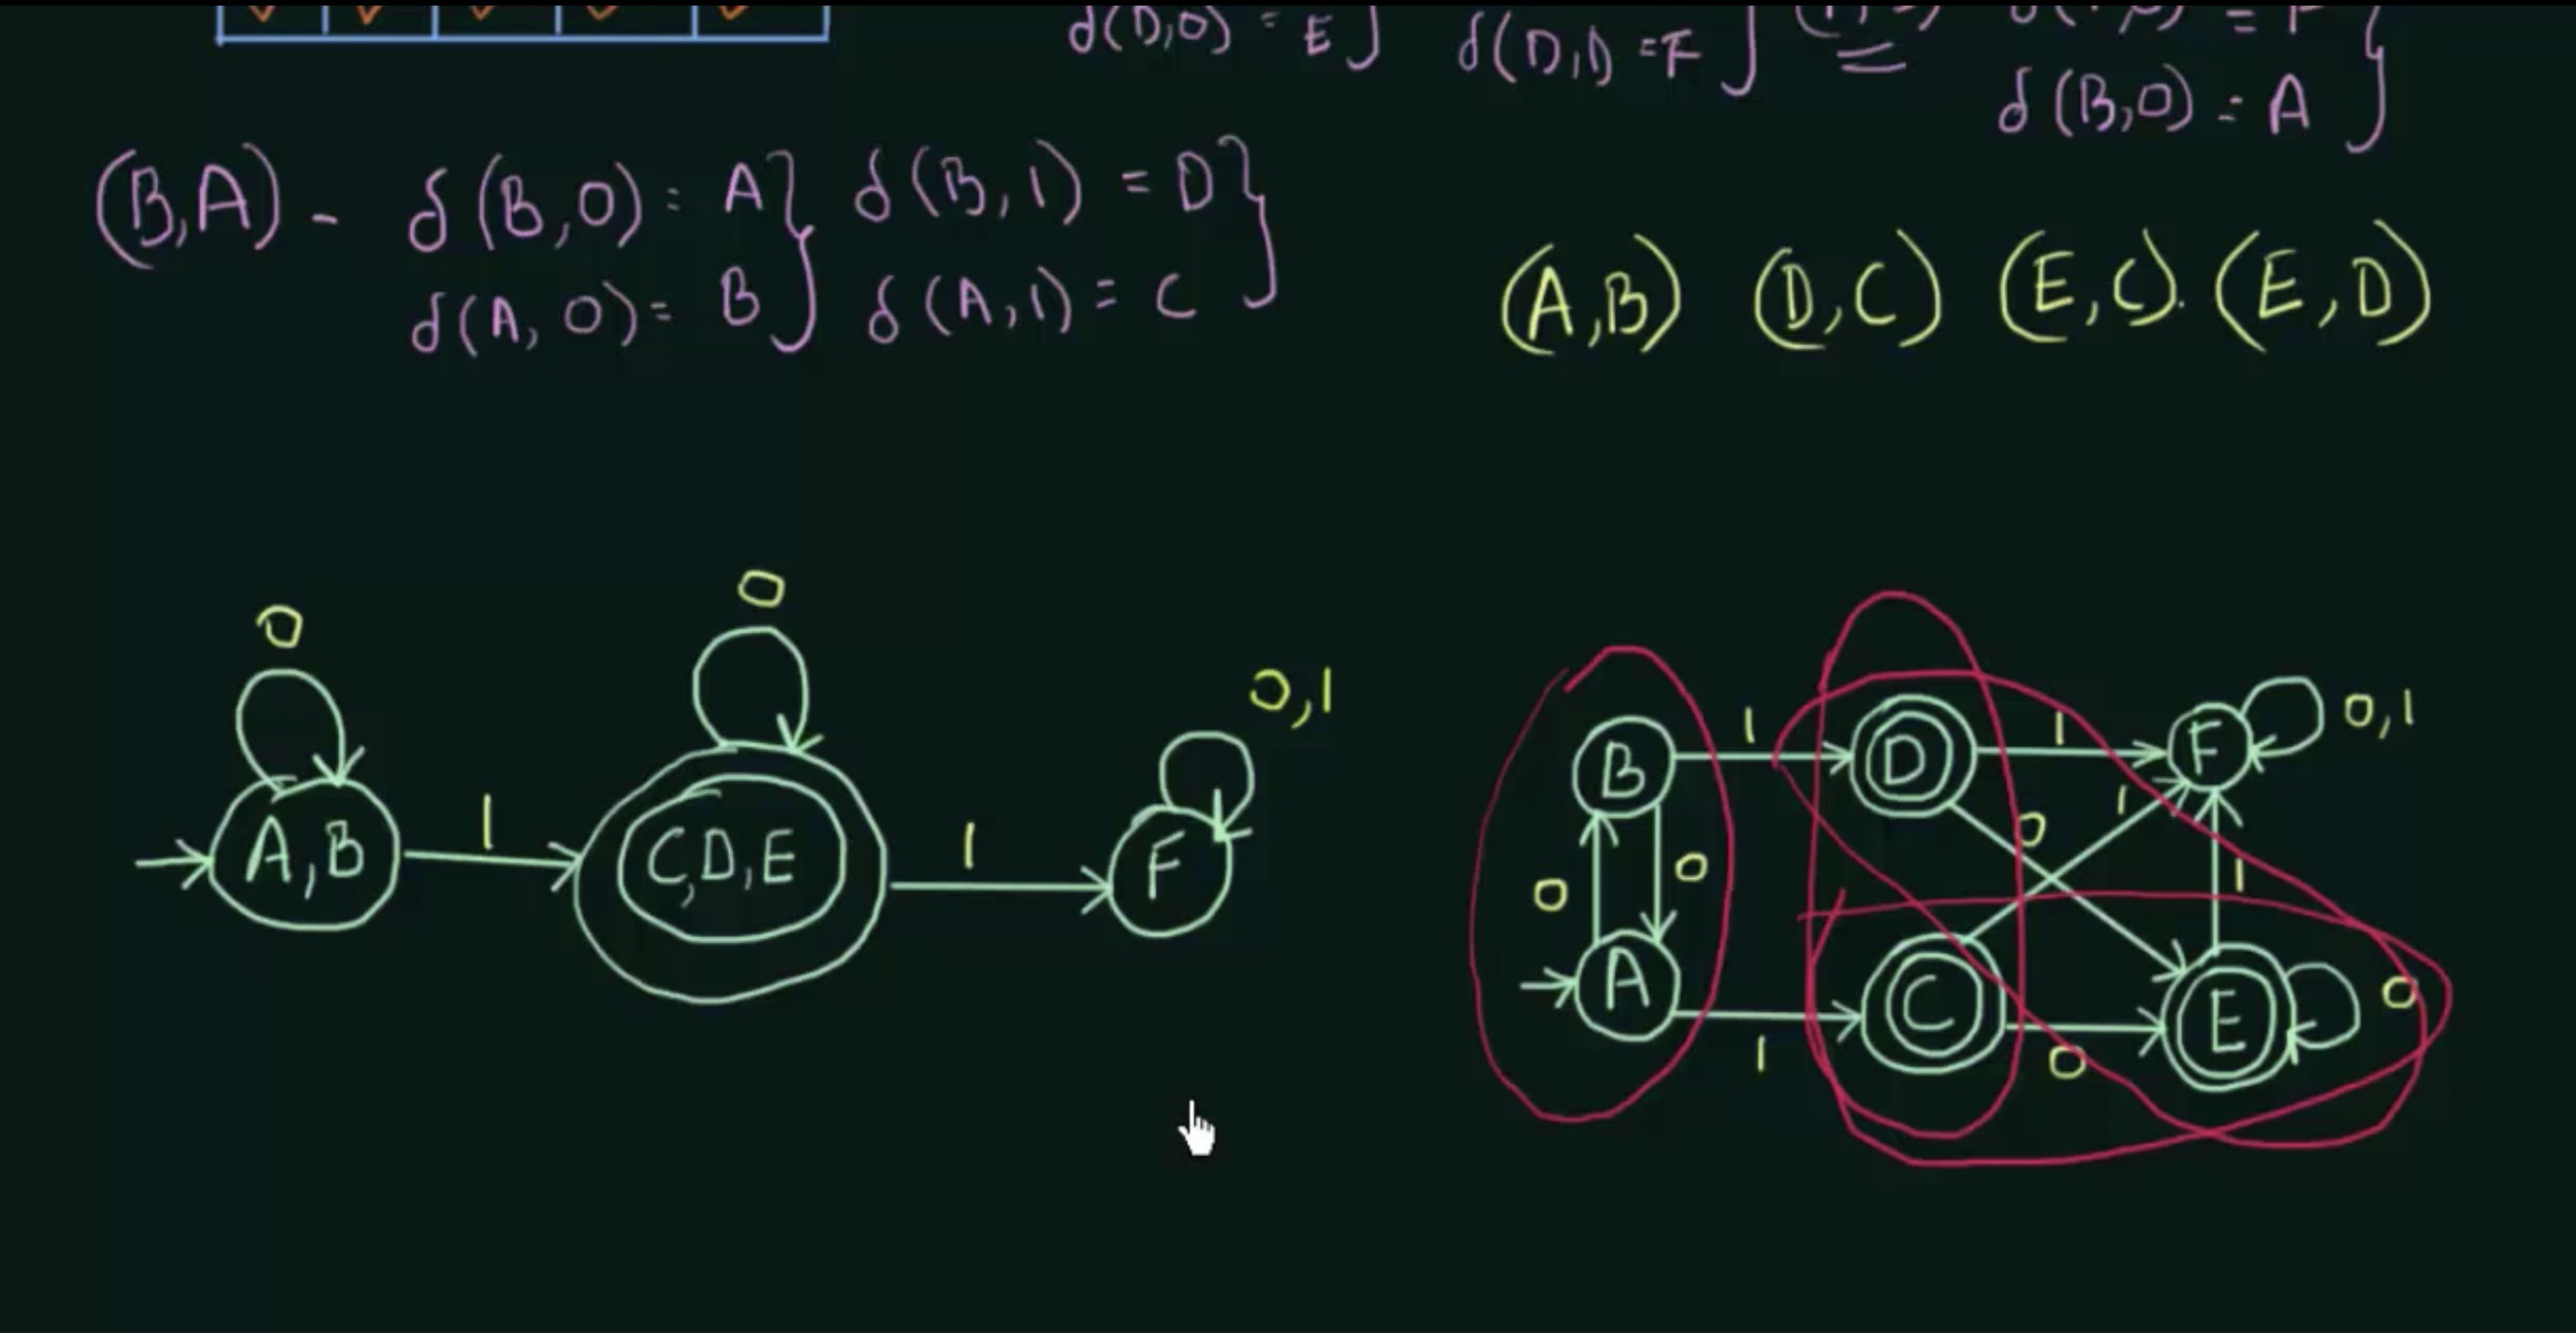 δ(D,0) = E} δ(D,1) = F}
δ(B,0) = A}
(B,A) - δ(B,0) = A} δ(B,1) = D}
δ(A,0) = B} δ(A,1) = C}
(A,B) (D,C) (E,C). (E,D)
0 0 0,1
A,B 1 C,D,E 1 F
B 1 D 1 F 0,1
0 0 0 1 1
A 1 C 0 E 0